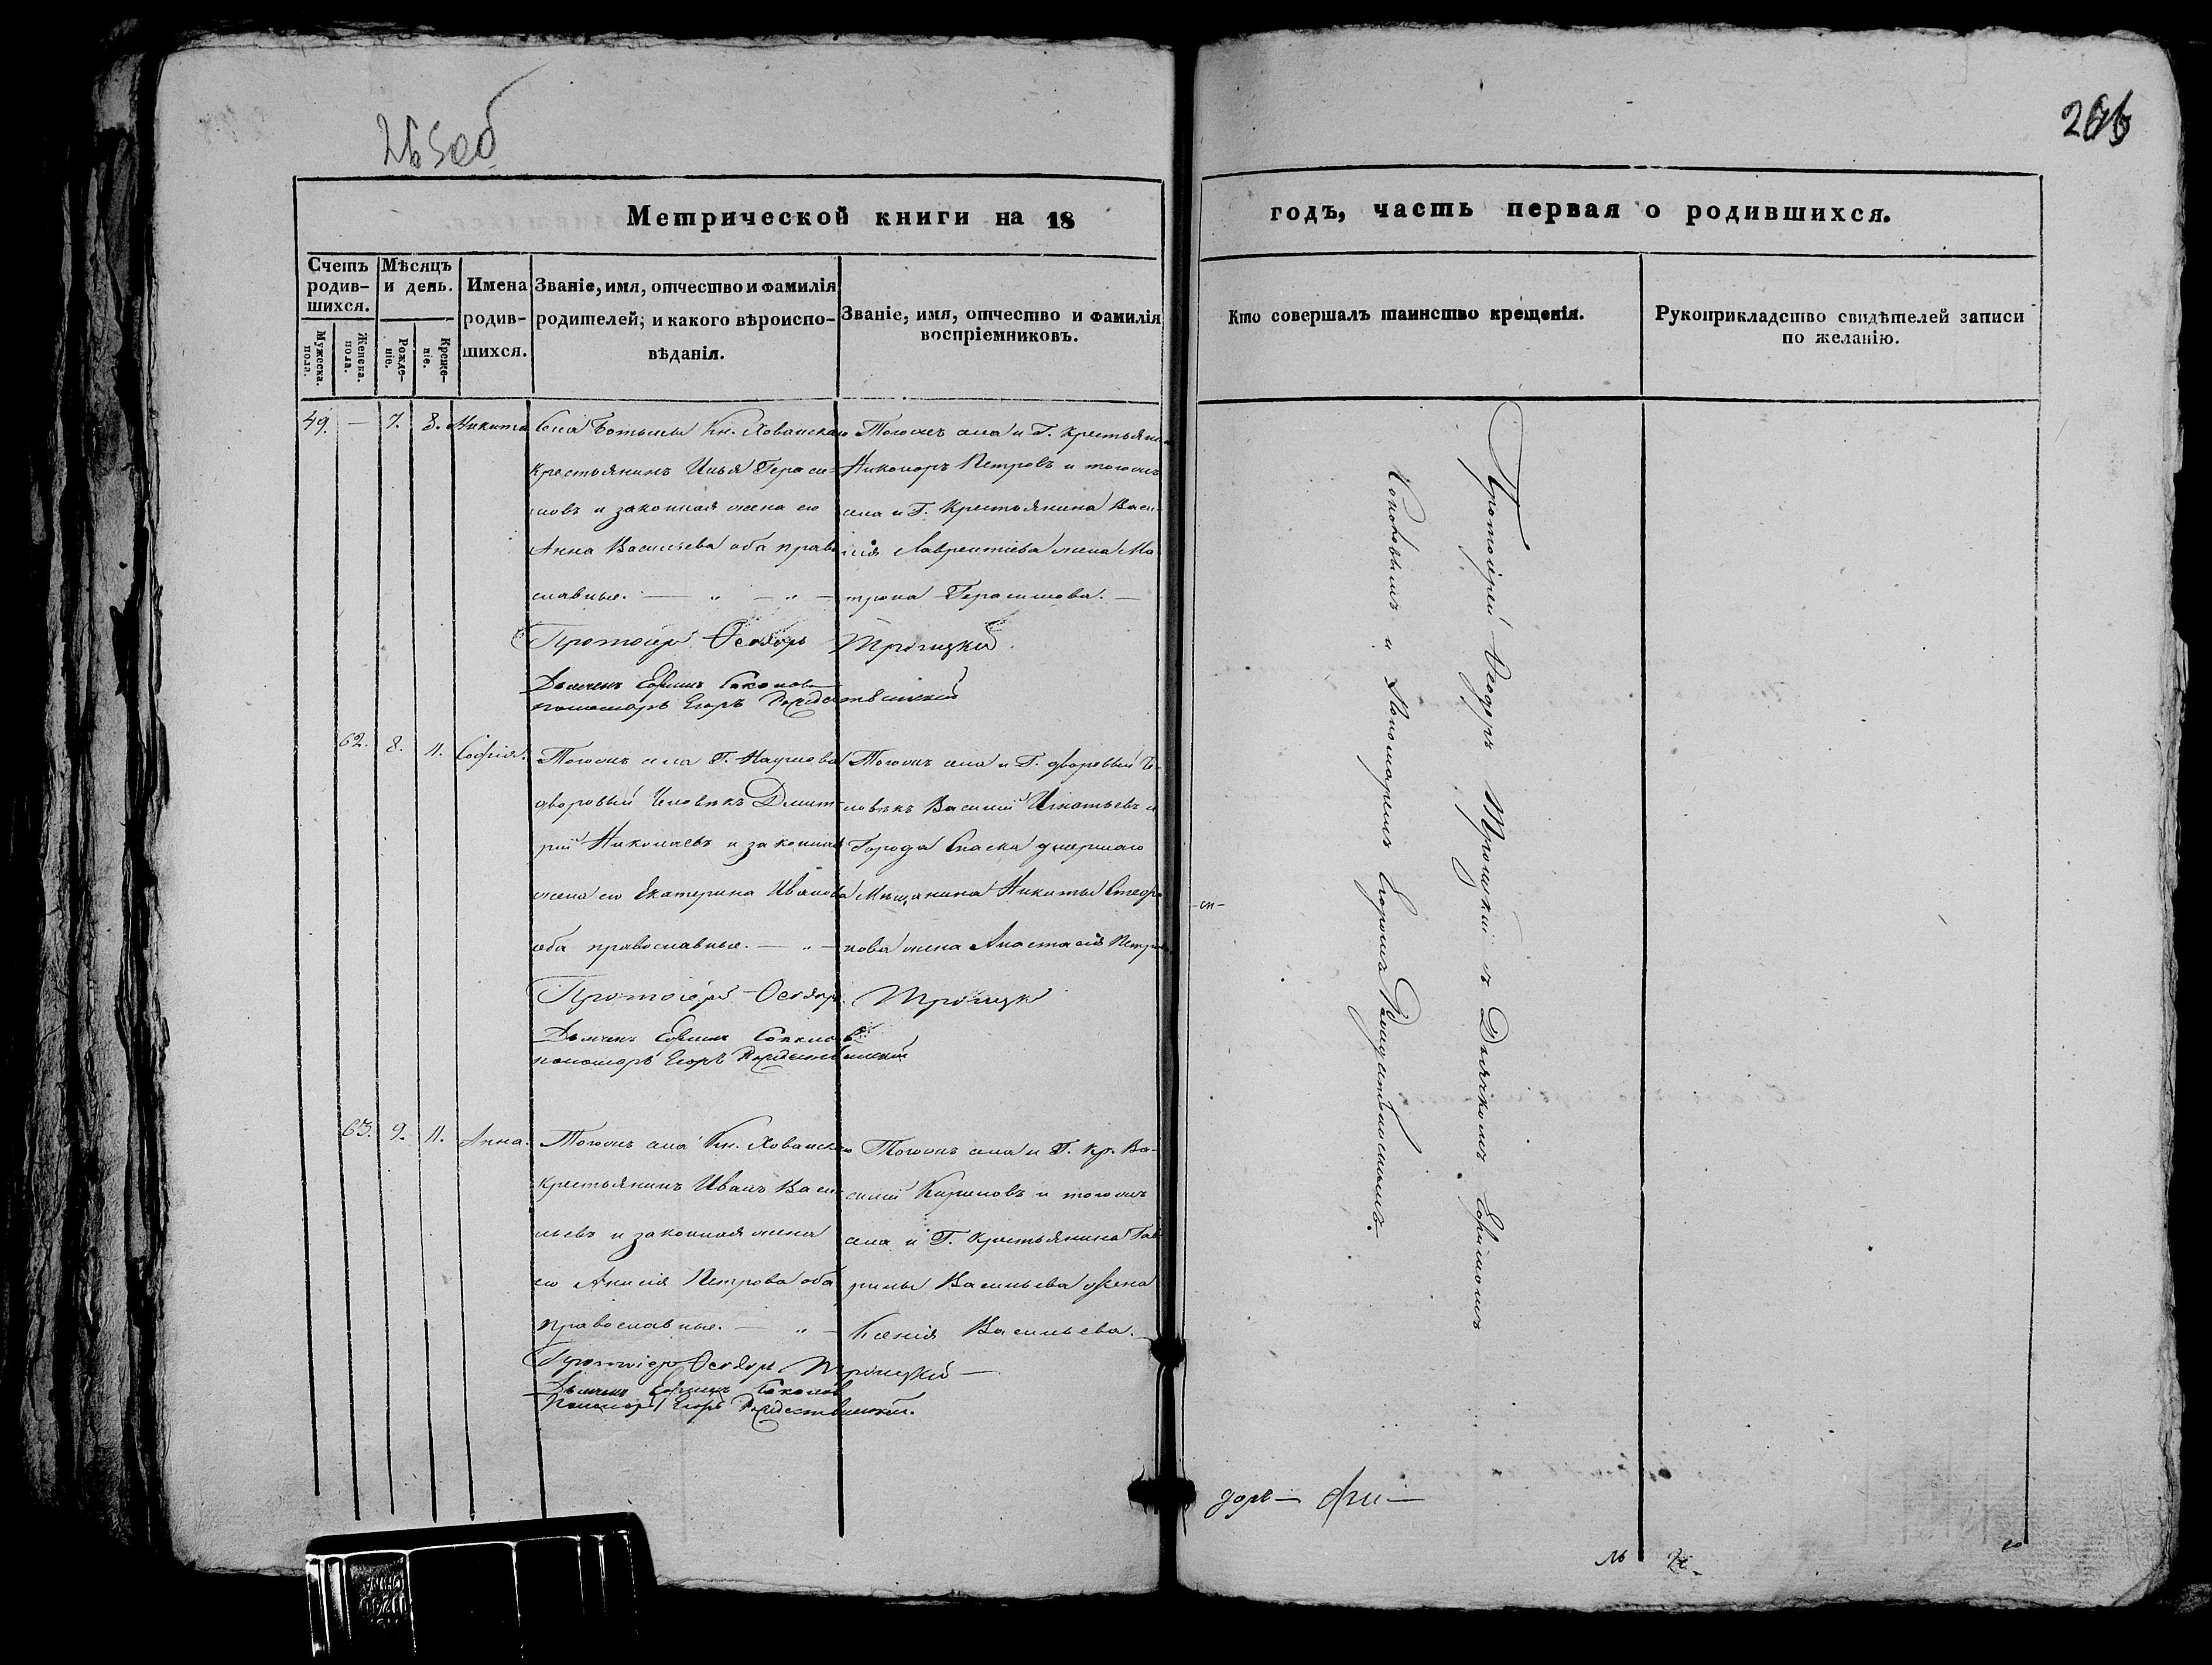 265об
266
Метрической книги на 18
годъ, часть первая о родившихся.
Счетъ родив-
шихся.
Мужеска. пола.
Женска. пола.
Мѣсяцъ
и день.
Рожде-
ніе.
Креще-
ніе.
Имена
родив-
шихся.
Званіе, имя, отчество и фамилія
родителей; и какого вѣроиспо-
вѣданія.
Званіе, имя, отчество и фамилія
воспріемниковъ.
Кто совершалъ таинство крещенія.
Рукоприкладство свидѣтелей записи
по желанію.
49. — 7. 8. Никита
Села Кн. Хованскаго
крестьянинъ Илья Гераси-
мовъ и законная жена его
Анна Васильева оба право
славные. — „ — „ —
Тогожъ села и Г. крестьянинъ
Никаноръ Петровъ и тогожъ
села и Г. крестьянина Васи-
лія Лаврентіева жена Ма
трона Герасимова. —
Протоіерей Ѳеодоръ Троицкій.
Дьячекъ Ефимъ Соколовъ
пономарь Егоръ Рождественскій
62. 8. 11. Софія.
Тогожъ села Г. Наумова
дворовый человѣкъ Дмит-
рій Николаевъ и законная
жена его Екатерина Иванова
оба православные. — „ —
Тогожъ села и Г. дворовый че-
ловѣкъ Василій Игнатьевъ и
Города Спаска умершаго
Мѣщанина Никиты Стефа
нова жена Анастасія Петрова
Протоіерей Ѳеодоръ Троицкій
Дьячекъ Ефимъ Соколовъ
пономарь Егоръ Рождественскій
63. 9. 11. Анна.
Тогожъ села Кн. Хованскаго
крестьянинъ Иванъ Васи-
льевъ и законная жена
его Анисія Петрова оба
православные. — „ —
Тогожъ села и Г. кр. Ва-
силій Кириловъ и тогожъ
села и Г. крестьянина Гав
рилы Васильева жена
Ксенія Васильева.
Протоіерей Ѳеодоръ Троицкій —
Дьячекъ Ефимъ Соколовъ
Пономарь Егоръ Рождественскій.
Протоіерей Ѳеодоръ Троицкій съ Дьячкомъ Ефимомъ
Соколовымъ и Пономаремъ Егоромъ Рождественскимъ.
доръ —